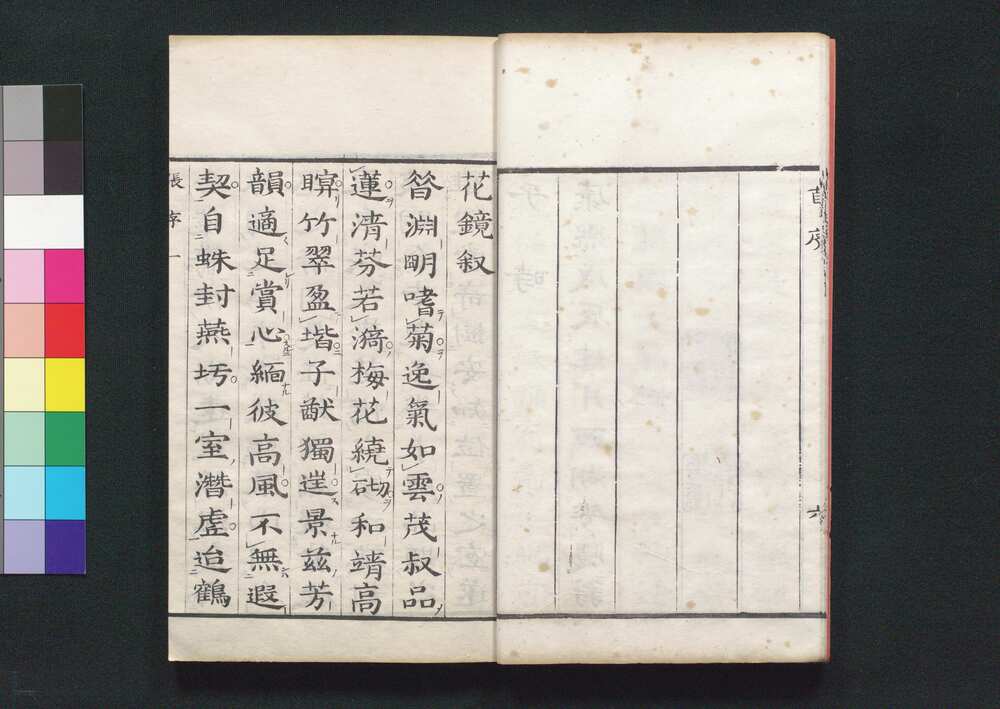 六
花鏡叙
昝淵明嗜菊逸氣如雲茂叔品
蓮清芬若漪梅花繞砌和靖高
竹翠盈堦子猷獨逞景茲芳
韻適足賞心緬彼高風不無遐
契自蛛封燕圬一室潛虛迨鶴
張序 一